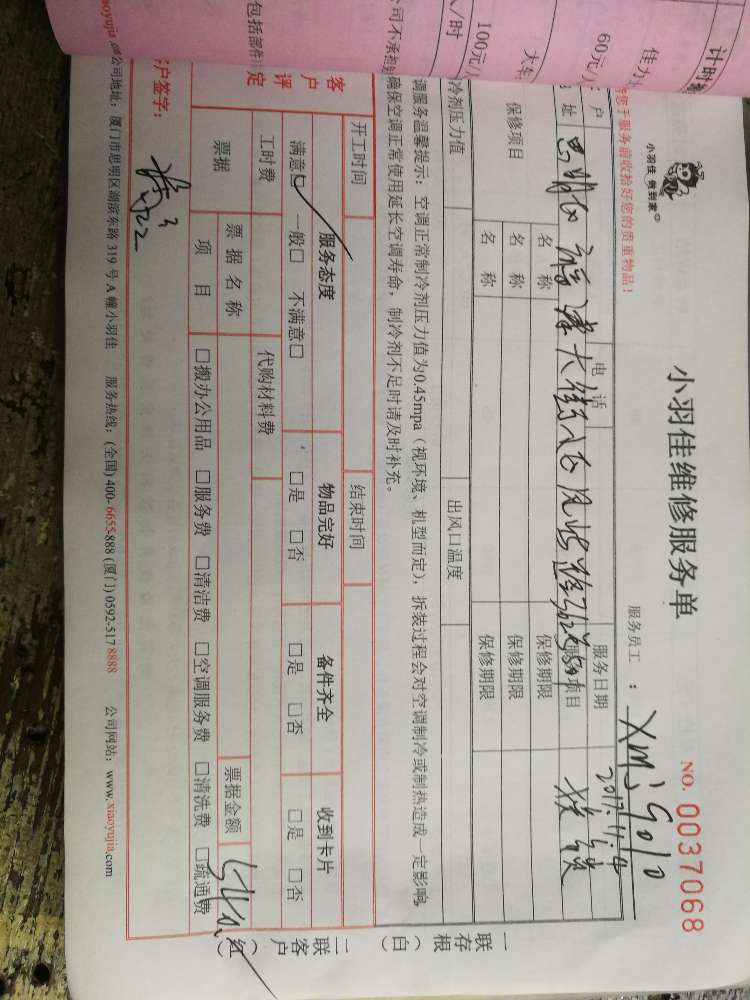 计时
佳力
60元/
大车
100元/
人/时
司不承担
包括部件
小羽佳 做到家
小羽佳维修服务单
NO. 0037068
服务员工 : XM5010
请您于服务前收拾好您的贵重物品!
户
电 话
服务日期
2017.11.4
址
思明区
服务项目
换锁
保修项目
名 称
保修期限
名 称
保修期限
名 称
保修期限
冷剂压力值
出风口温度
调服务温馨提示:空调正常制冷剂压力值为0.45mpa(视环境、机型而定),拆装过程会对空调制冷或制热造成一定影响,
确保空调正常使用延长空调寿命,制冷剂不足时请及时补充。
开工时间
结束时间
客户评定
服务态度
物品完好
备件齐全
收到卡片
满意☑ 一般□ 不满意□
□是 □否
□是 □否
□是 □否
工时费
代购材料费
票据
票 据 名 称
票据金额
项 目
□搬办公用品 □服务费 □清洁费 □空调服务费 □清洗费 □疏通费
客户签字:
公司地址:厦门市思明区湖滨东路 319 号 A 幢小羽佳 服务热线:(全国) 400-6655-888 (厦门) 0592-517 8888 公司网站:www.xiaoyujia.com
一联存根(白)
二联客户(红)